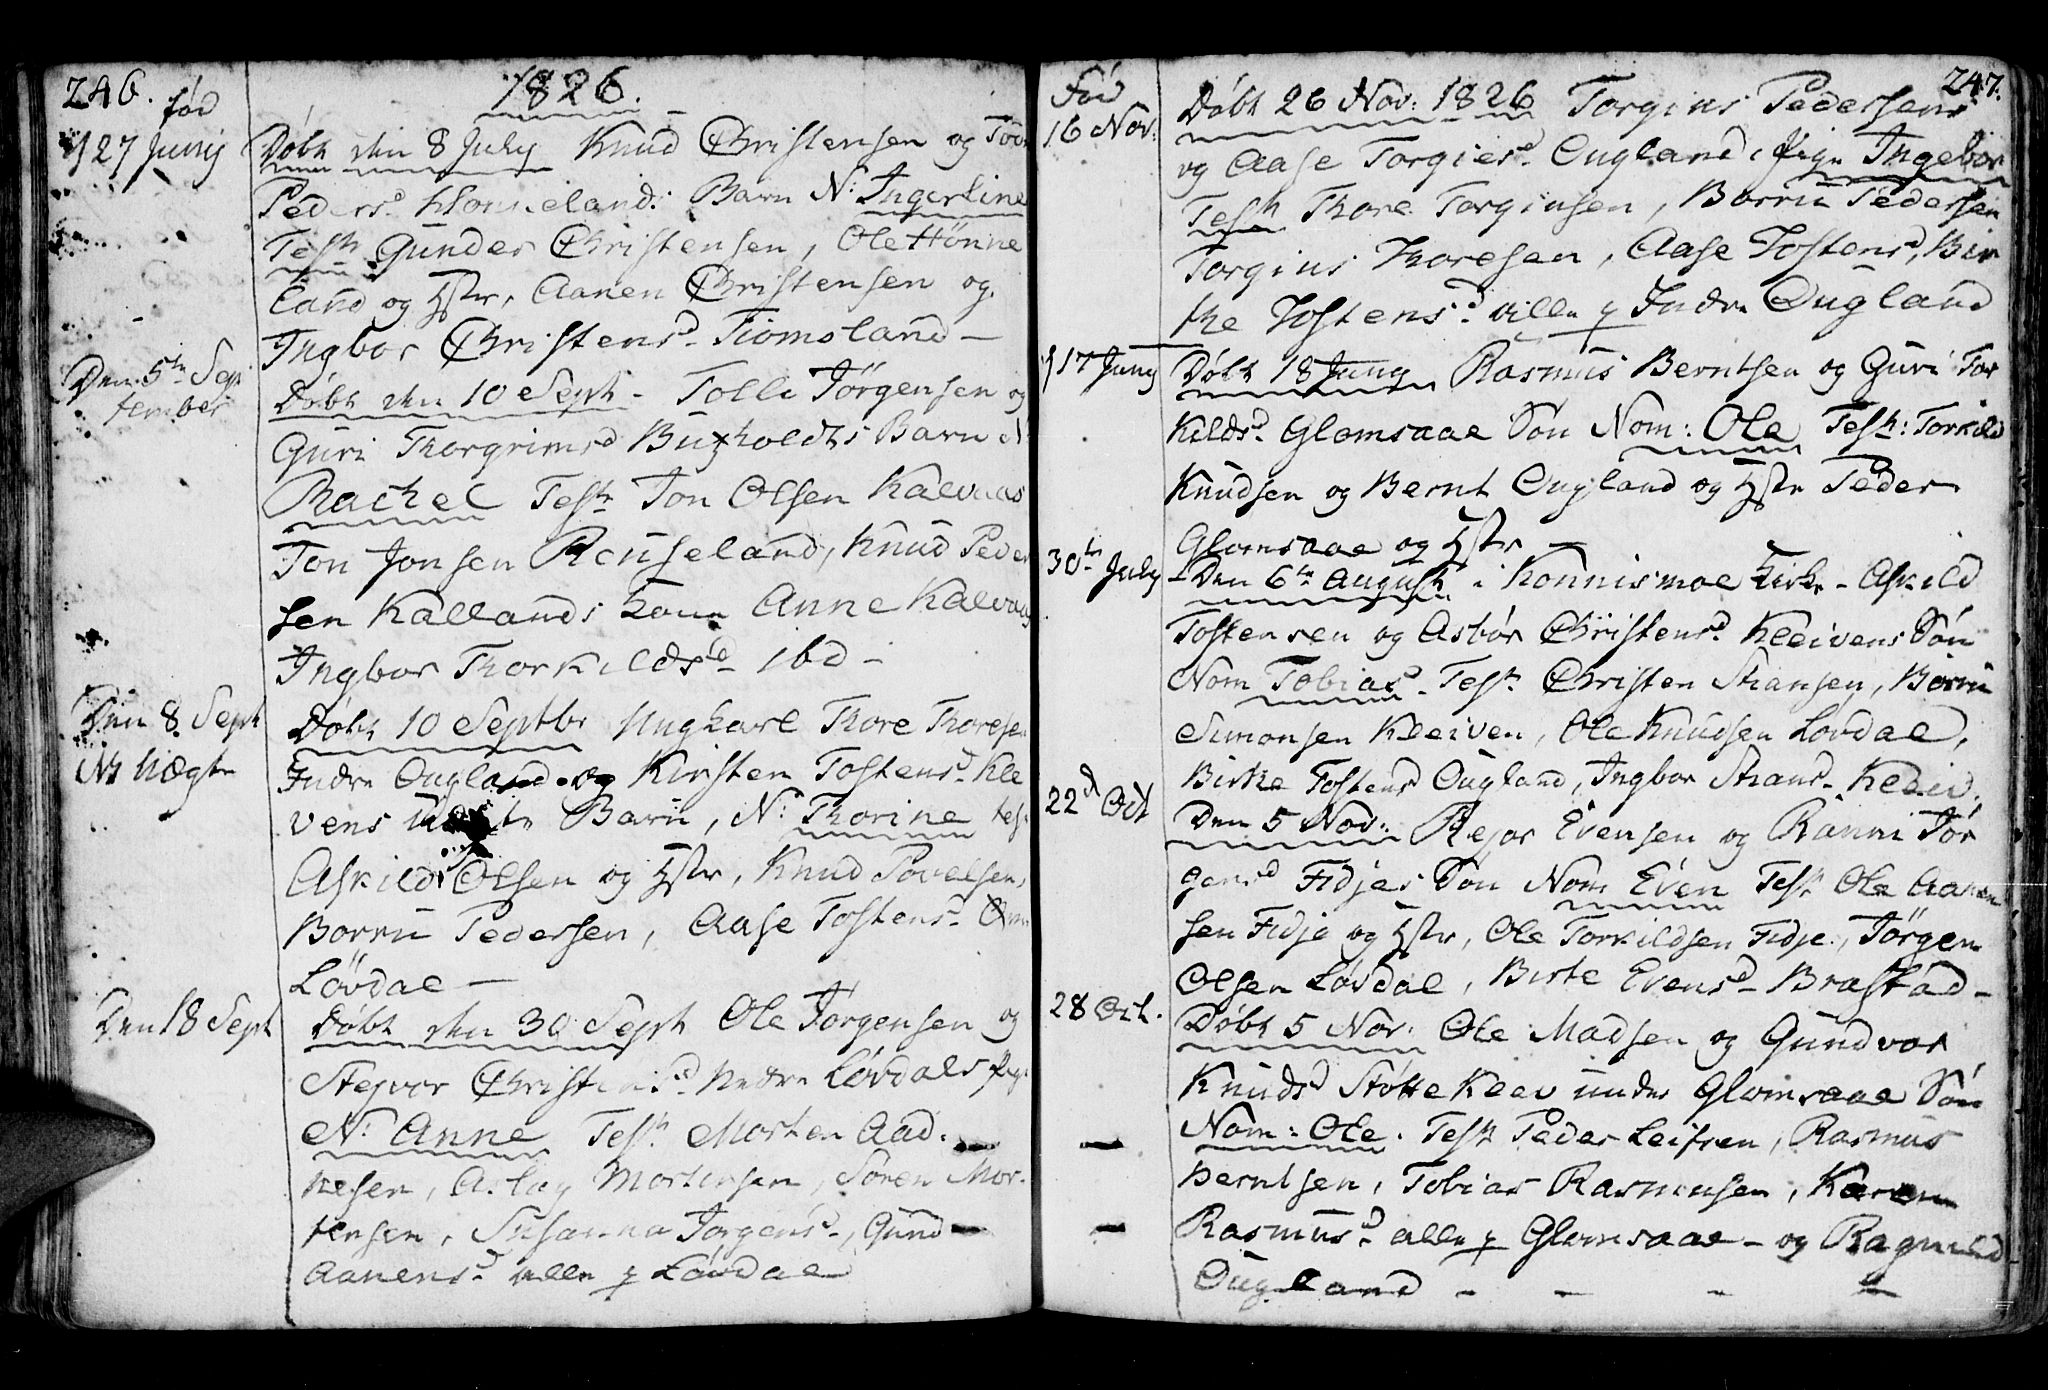 246.
fød
d 27 Junij
1826.
Døbt den 8 July Knud Christensen og Tor
Peders.d land: Barn N: Ingerline
Test: Gunder Christensen, Ole Hønne
land og Hstr, Aanen Christensen og
Ingbor Christens.d Tiomsland –
Den 5te Sep
tember
Døbt den 10 Sept. Tolle Jörgensen og
Guri Thorgrimsd Buxholdts Barn N
Rachel Test. Jon Olsen Kalvaas
Jon Jonsen Reuseland, Knud Peder
sen Kallands Kone Anne Kalvaas
Ingbor Thorkildsd – ibd –
Den 8. Sept
Døbt 10 Septbr Ungkarl Thore Thoresen
Indre Ougland og Kirsten Tostens.d Kle
vens Barn, N: Thorine tes
Askild Olsen og Hstr, Knud Povelsen,
Borru Pedersen, Aase Tostens.d
Lövdal –
Den 18 Sept
Døbt den 30 Sept Ole Jörgensen og
Stejvor Christensd Nedre Lövdals pige
N: Anne Test. Morten Aad.
nesen, Aslag Mortensen, Sören Mor.
tensen, Susanna Jörgens.d, Gund
Aanens.d alle p Lövdal
247.
Fød
16 Nov:
Døbt 26 Nov: 1826 Torgius Pedersens
og Aase Torgiesd. Ougland, pige Ingebor
Test Thore Torgiusen, Borru Pedersen
Torgius Thoresen, Aase Tostensd, Bir
the Tostens.d alle p Indre Ougland
d 17 Junij
Døbt 18 Junij Rasmus Berntsen og Guri Tor
kildsd. Glomsaae Sön Nom: Ole Test: Torkild
Knudsen og Bernt Ougland og Hstr Peder
Glomsaae og Hstr –
30te July
– Den 6te August i Konnismoe Kirke – Askild
Tostensen og Asbör Christensd. Kleivens Sön
Nom Tobias. Test. Christen Stiansen, Börru
Simonsen Kleiven, Ole Knudsen Lovdal,
Birthe Tostensd Ougland, Ingbor Stiansd. Kleiv.
22d Oct
Den 5 Nov: Rejor Evensen og Ranni Jör
gensd Fidjes Sön Nom Even Test Ole Aanen
sen Fidje og Hstr, Ole Torkildsen Fidje, Jörgen
Olsen Lövdal, Birte Evensd – Brastad –
28 Oct.
Døbt 5 Nov. Ole Madsen og Gundvor
Knudsd Støtte Kleiv under Glomsaae Sön
Nom: Ole. Test Peder Leifsen, Rasmus
Berntsen, Tobias Rasmusen, Karen
Rasmusd. alle p Glomsaae – og Ragnild
Ougland – – – –